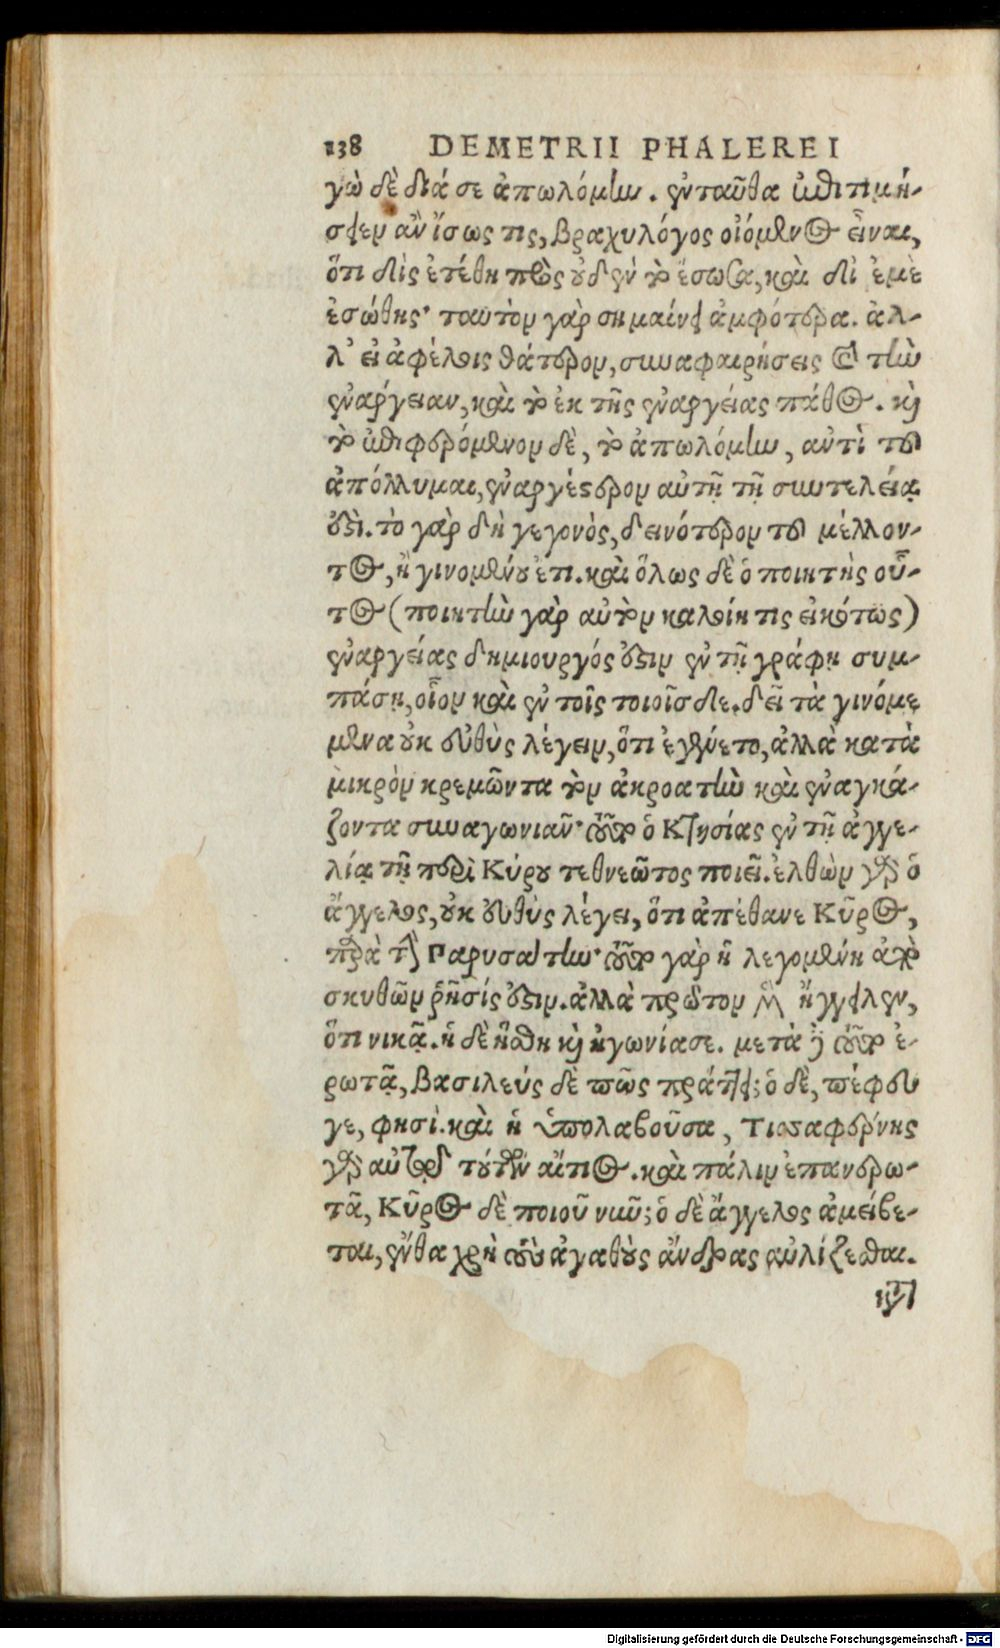 138 DEMETRII PHALEREI
γὼ δὲ διά σε ἀπωλόμην. ἐνταῦθα ἐπιτιμή-
σειεν ἂν ἴσως τις, βραχυλόγος οἰόμενος εἶναι,
ὅτι δὶς ἐτέθη πρὸς οὐδὲν τὸ ἔσωσα, καὶ δι' ἐμὲ
ἐσώθης· ταυτὸν γὰρ σημαίνει ἀμφότερα. ἀλ-
λ' εἰ ἀφέλοις θάτερον, συναφαιρήσεις καὶ τὴν
ἐνάργειαν, καὶ τὸ ἐκ τῆς ἐναργείας πάθος. καὶ
τὸ ἐπιφερόμενον δὲ, τὸ ἀπωλόμην, ἀντὶ τοῦ
ἀπόλλυμαι, ἐναργέστερον αὐτῇ τῇ συντελείᾳ
ἐστί. τὸ γὰρ δὴ γεγονὸς, δεινότερον τοῦ μέλλον-
τος, ἢ γινομένου ἔτι. καὶ ὅλως δὲ ὁ ποιητὴς οὗ-
τος (ποιητὴν γὰρ αὐτὸν καλοίη τις εἰκότως)
ἐναργείας δημιουργός ἐστιν ἐν τῇ γράφῃ συμ-
πάσῃ, οἷον καὶ ἐν τοῖς τοιοῖσδε. δεῖ τὰ γινόμε
μενα οὐκ εὐθὺς λέγειν, ὅτι ἐγένετο, ἀλλὰ κατὰ
μικρὸν κρεμῶντα τὸν ἀκροατὴν καὶ ἐναγκά-
ζοντα συναγωνιᾶν· τοῦτο ὁ Κτησίας ἐν τῇ ἀγγε-
λίᾳ τῇ περὶ Κύρου τεθνεῶτος ποιεῖ. ἐλθὼν γὰρ ὁ
ἄγγελος, οὐκ εὐθὺς λέγει, ὅτι ἀπέθανε Κῦρος,
παρὰ τὴν Παρυσάτην· τοῦτο γὰρ ἡ λεγομένη ἀπὸ
σκυθῶν ῥῆσίς ἐστιν. ἀλλὰ πρῶτον μὲν ἤγγειλεν,
ὅτι νικᾷ. ἡ δὲ ἥσθη καὶ ἠγωνίασε. μετὰ δὲ τοῦτο ἐ-
ρωτᾷ, βασιλεύς δὲ πῶς πράττει; ὁ δὲ, πέφευ
γε, φησί. καὶ ἡ ὑπολαβοῦσα, Τισσαφέρνης
γὰρ αὐτῷ τούτων αἴτιος. καὶ πάλιν ἐπανερω-
τᾷ, Κῦρος δὲ ποιοῦ νῦν; ὁ δὲ ἄγγελος ἀμείβε-
ται, ἔνθα χρὴ τοὺς ἀγαθοὺς ἄνδρας αὐλίζεσθαι.
Digitalisierung gefördert durch die Deutsche Forschungsgemeinschaft - DFG